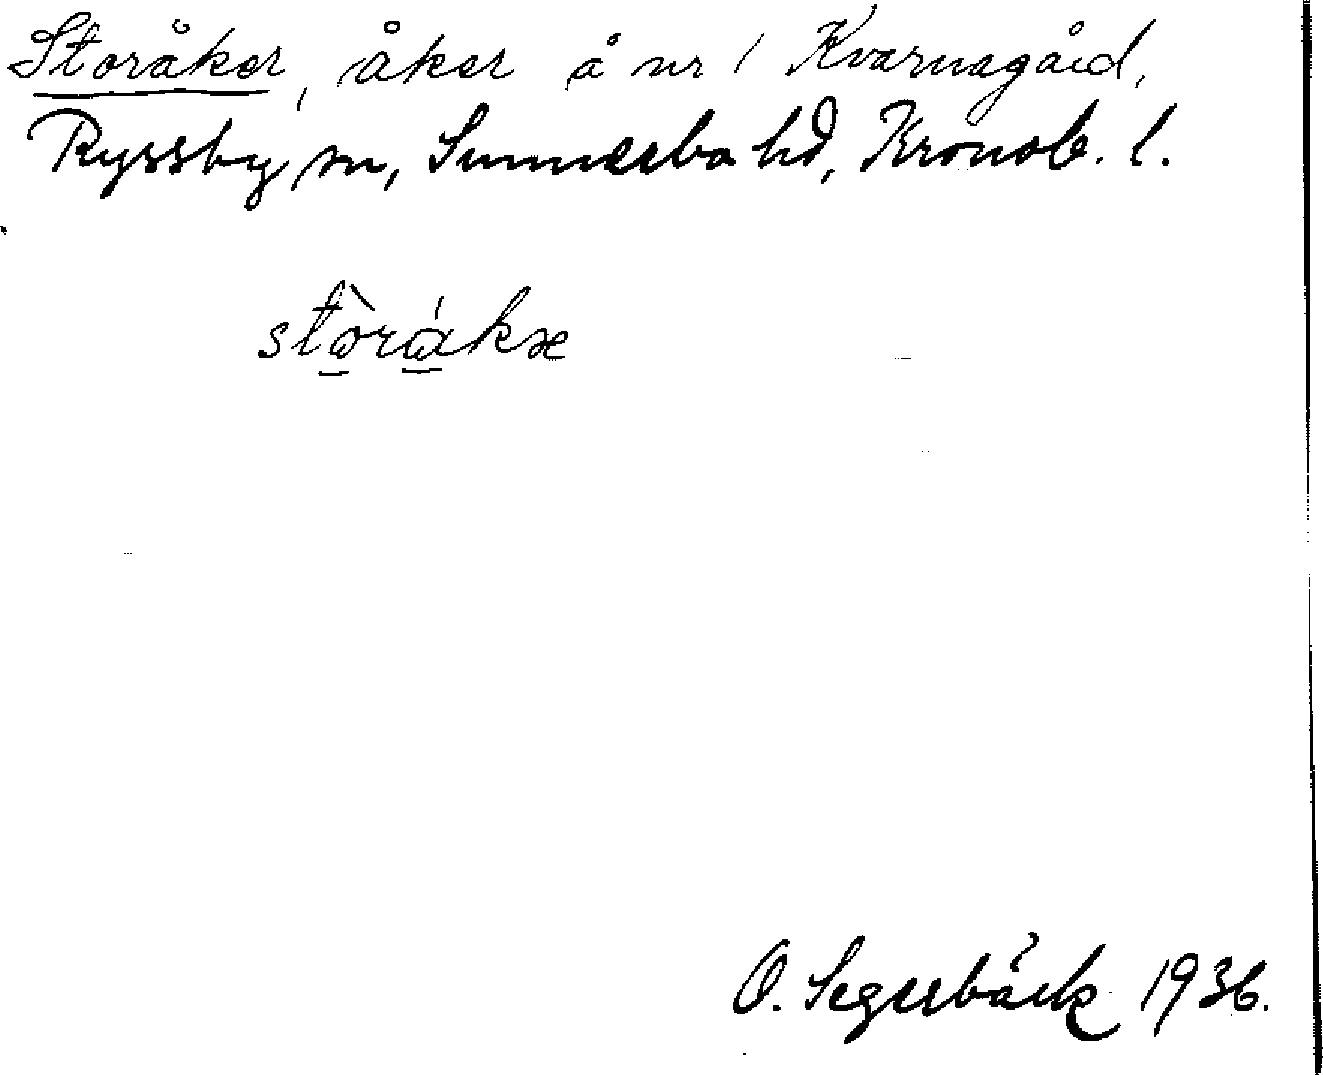 Storåker, åker å nr 1 Kvarnagård,
Ryssby sn, Sunnerbo hd, Kronob. l.
stòrákæ
O. Segerbäck 1936.